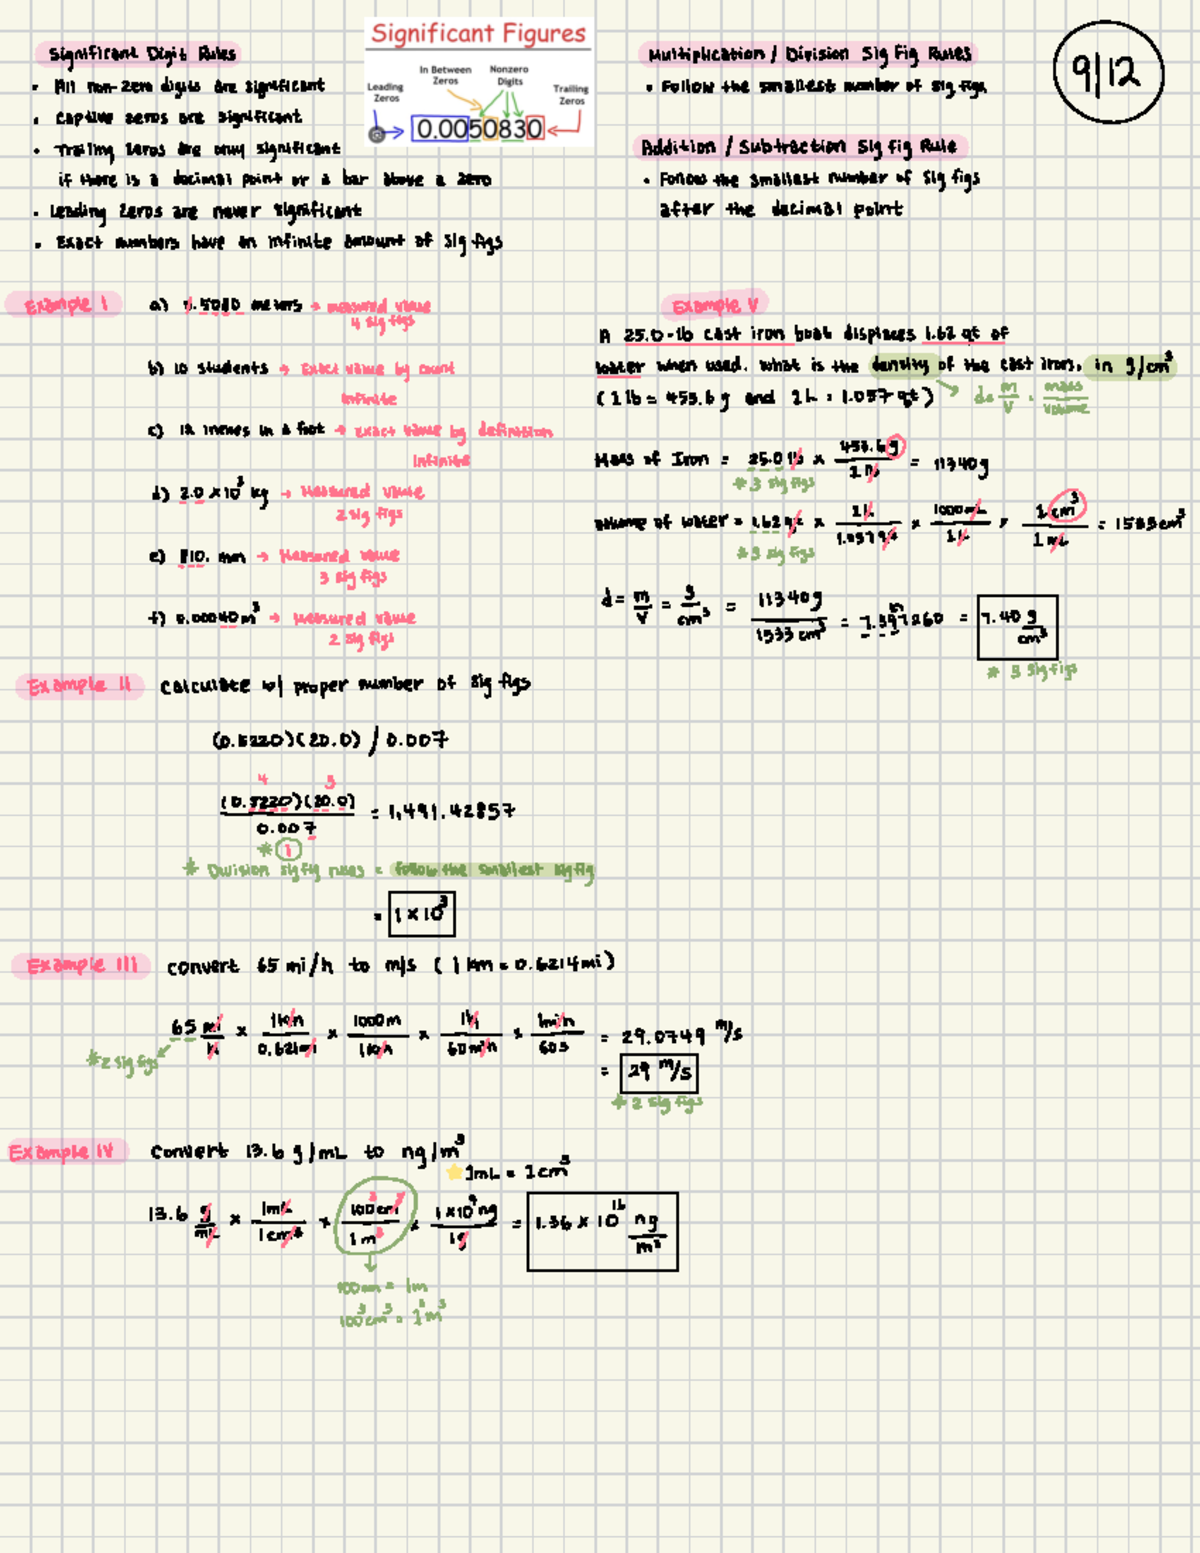 Significant Digit Rules
• All non-zero digits are significant
• Captive zeros are significant
• Trailing zeros are only significant
if there is a decimal point or a bar above a zero
• Leading zeros are never significant
• Exact numbers have an infinite amount of sig figs
Significant Figures
In Between Zeros
Nonzero Digits
Leading Zeros
Trailing Zeros
0.0050830
Multiplication / Division Sig Fig Rules
• Follow the smallest number of sig figs
Addition / Subtraction Sig Fig Rule
• Follow the smallest number of sig figs
after the decimal point
9/12
Example I
meters → measured value
4 sig figs
b) 10 students → Exact value by count
infinite
c) 12 inches in a foot → exact value by definition
infinite
d) 2.0 × 10³ kg → Measured value
2 sig figs
e) 810. mm → Measured value
3 sig figs
f) 0.00040 m³ → Measured value
2 sig figs
Example II calculate w/ proper number of sig figs
(0.5220)(20.0) / 0.007
4 3
(0.5220)(20.0)
0.007
= 1,491.42857
* 1
* Division sig fig rules = follow the smallest sig fig
= 1 × 10³
Example III convert 65 mi/h to m/s ( 1 km = 0.6214 mi )
65 mi/h × 1km/0.621mi × 1000m/1km × 1h/60min × 1min/60s = 29.0749 m/s
* 2 sig figs
= 29 m/s
* 2 sig figs
Example IV convert 13.6 g/mL to ng/m³
1mL = 1cm³
13.6 g/mL × 1mL/1cm³ × 100³cm³/1m³ × 1×10⁹ng/1g = 1.36 × 10¹⁶ ng/m³
100cm = 1m
100³cm³ = 1³m³
Example V
A 25.0-lb cast iron boat displaces 1.62 qt of
water when used. what is the density of the cast iron, in g/cm³
(1 lb = 453.6 g and 1L = 1.057 qt) → d= m/V = mass/volume
Mass of Iron = 25.0 lb × 453.6g/1 lb = 11340g
* 3 sig figs
volume of water = 1.62 qt × 1L/1.057qt × 1000mL/1L × 1cm³/1mL = 1533cm³
* 3 sig figs
d= m/V = g/cm³ = 11340g/1533cm³ = 7.397260 = 7.40 g/cm³
* 3 sig figs